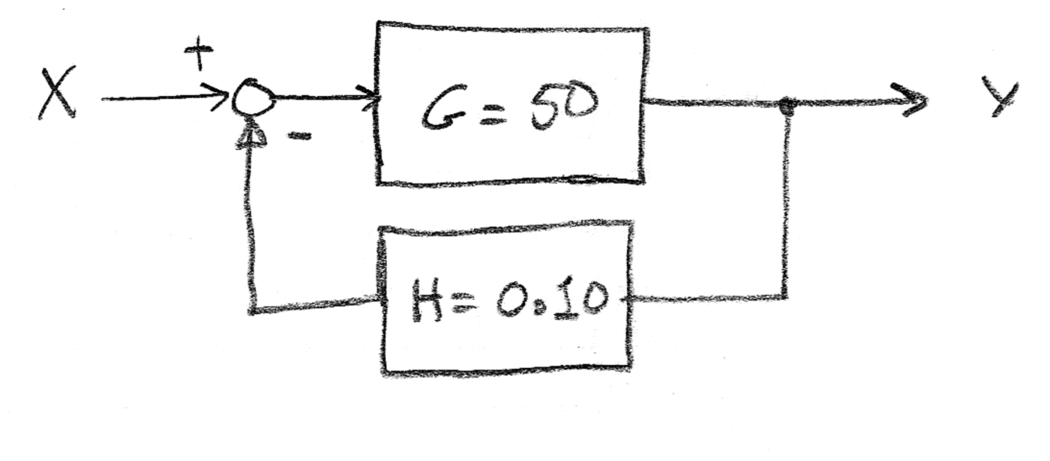 +
X
G = 50
Y
-
H = 0.10